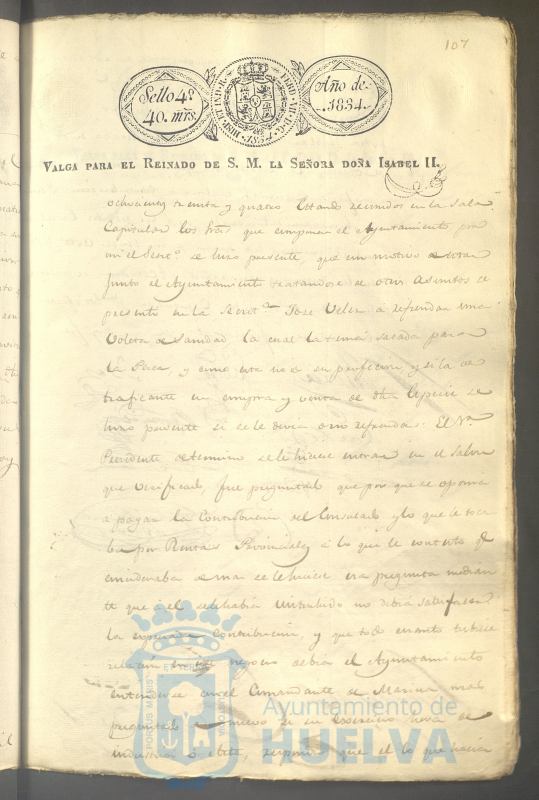 107
Sello 4º
40. mrs.
HISP. ET IND. R.
FERD. VII. D. G.
1834.
Año de
1834.
VALGA PARA EL REINADO DE S. M. LA SEÑORA DOÑA ISABEL II.
ochocientos treinta y quatro Estando reunidos en la Sala
Capitular los Sres que componen el Ayuntamiento por
mi el Secretº se hizo presente, que con motivo de estar
Junto el Ayuntamiento tratandose de otros Asuntos se
presentó en la Secretª Jose Velez a refrendar una
Voleta de Sanidad la cual la tenia sacada para
la Pesca, y como esta no es su profesion y si la de
traficante en compra y venta de dha Especie se
hizo presente si se le devia o no refrendar: El Sr.
Presidente determinó se le hiciese entrar en el Salon
que Verificado, fue preguntado que por que se oponia
a pagar la Contribucion del Consulado y lo que le toca
ba por Rentas Provinciales a lo que le contestó qe
consideraba demas se le hiciese esa pregunta median
te que a el se le habia no debia satisfacer
la expresada Contribucion, y que todo cuanto tubiese
relacion negocio debia el Ayuntamiento
entenderse con el Comandante de Marina mas
preguntado nuevo si su exercicio hera de
industria o este, respondio que el lo que hacia
PORTUS MARIS
ET TERRÆ
Ayuntamiento de
HUELVA